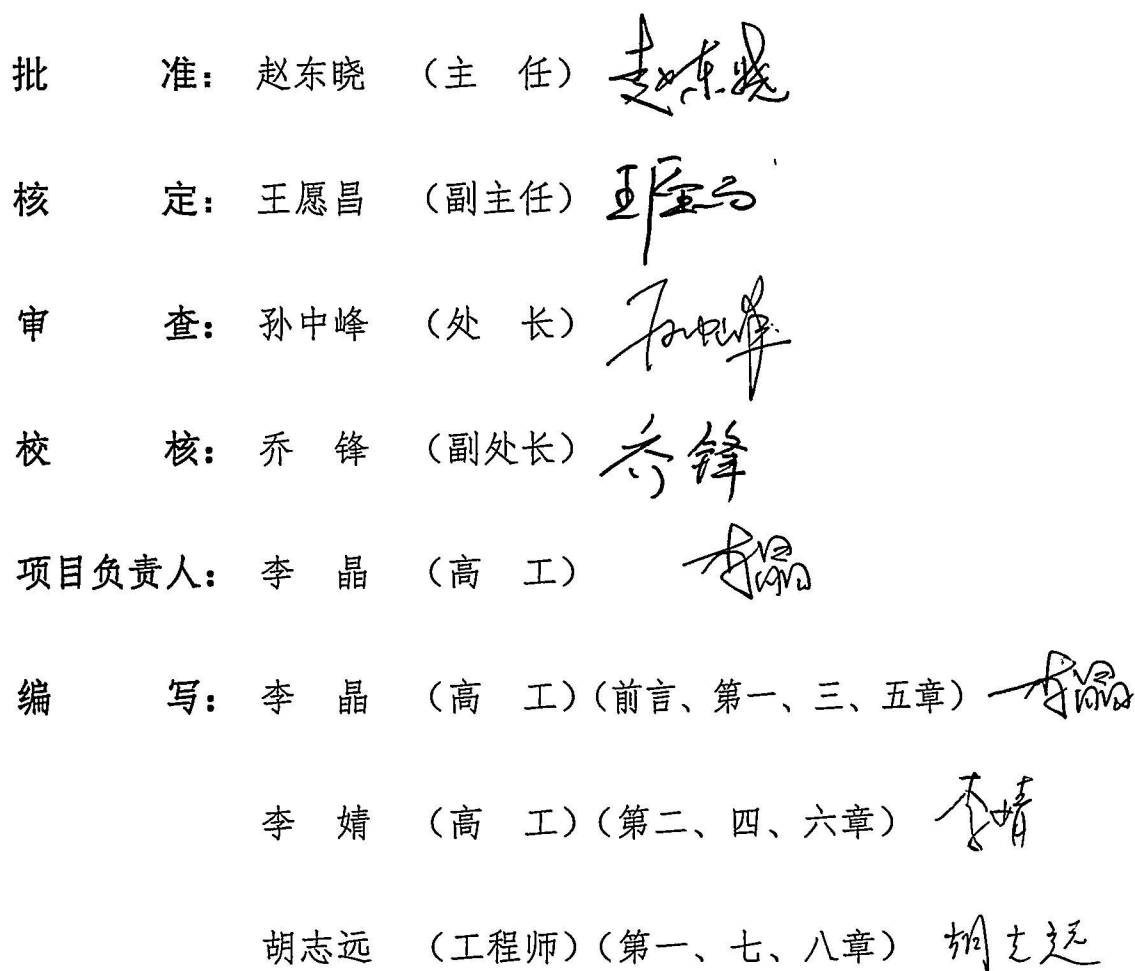 批 准：赵东晓 （主 任） 赵东晓
核 定：王愿昌 （副主任）
审 查：孙中峰 （处 长） 孙中峰
校 核：乔 锋 （副处长） 乔锋
项目负责人：李 晶 （高 工） 李晶
编 写：李 晶 （高 工）（前言、第一、三、五章） 李晶
李 婧 （高 工）（第二、四、六章） 李婧
胡志远 （工程师）（第一、七、八章） 胡志远